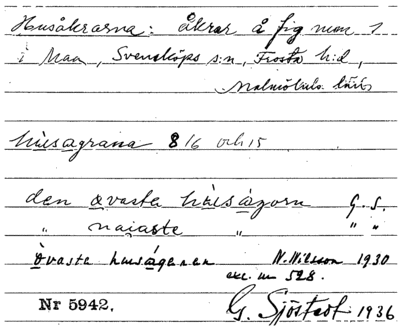 Husåkrarna: åkrar å fig num 1
i Maa, Svensköps s:n, Frosta h:d,
Malmöhus län
husagrana 8 16 och 15
den øvasta huságorn G. S.
" naiaste " " "
øvasta huságanan N. Nilsson 1930
exc. nr 528.
Nr 5942. G. Sjöstedt 1936